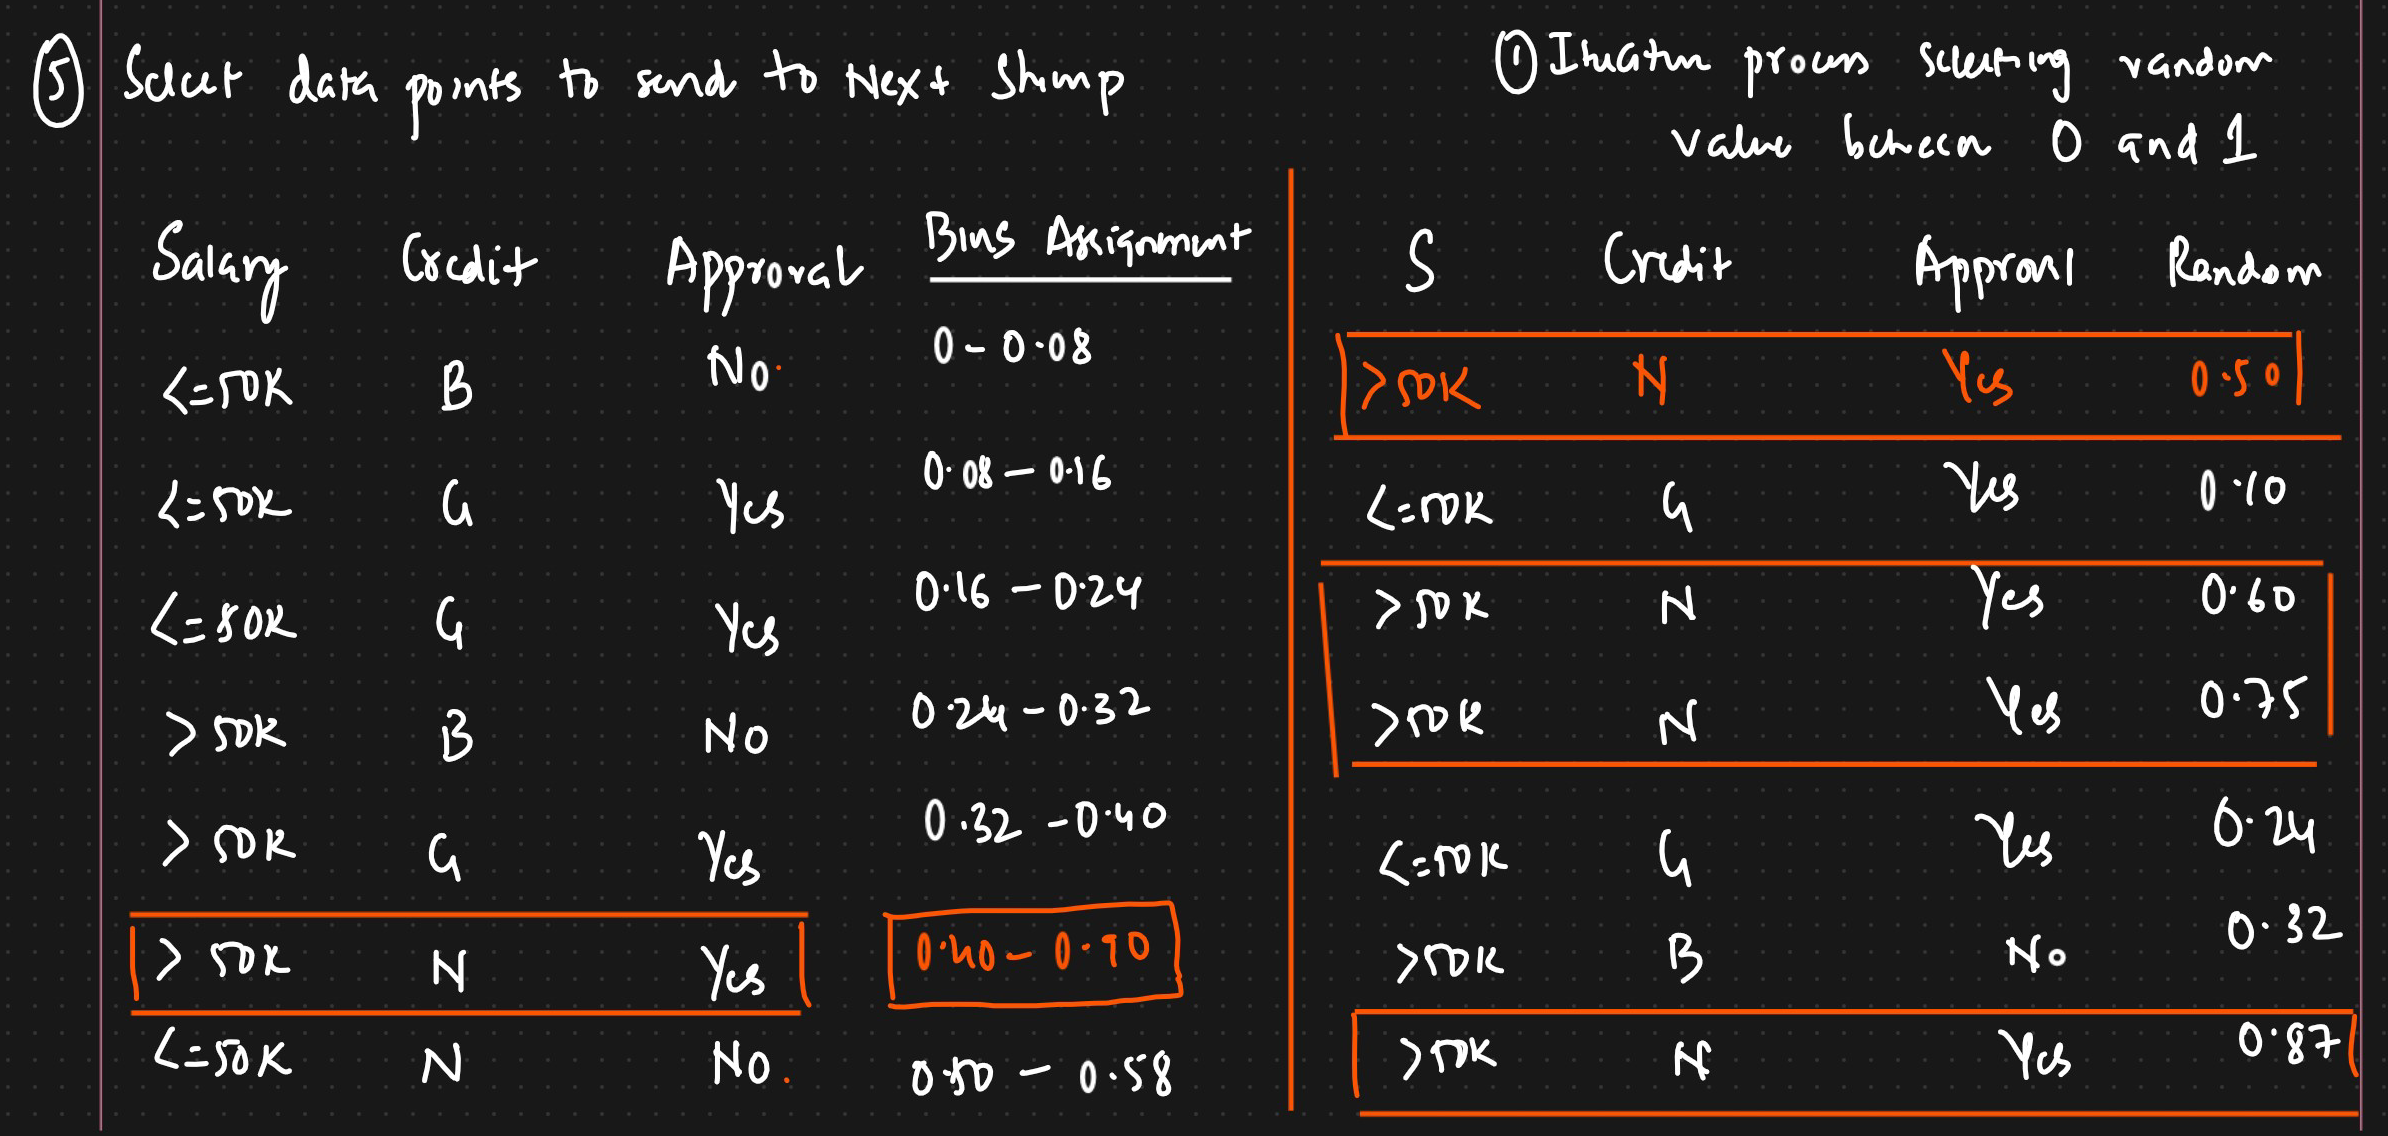 ⑤ Select data points to send to Next Stump
Salary Credit Approval Bins Assignment
<=50K B No 0 - 0.08
<=50K G Yes 0.08 - 0.16
<=50K G Yes 0.16 - 0.24
>50K B No 0.24 - 0.32
>50K G Yes 0.32 - 0.40
>50K N Yes 0.40 - 0.90
<=50K N No. 0.50 - 0.58
① Iteration process selecting random
value between 0 and 1
S Credit Approval Random
>50K N Yes 0.50
<=50K G Yes 0.10
>50K N Yes 0.60
>50K N Yes 0.75
<=50K G Yes 0.24
>50K B No 0.32
>50K N Yes 0.87